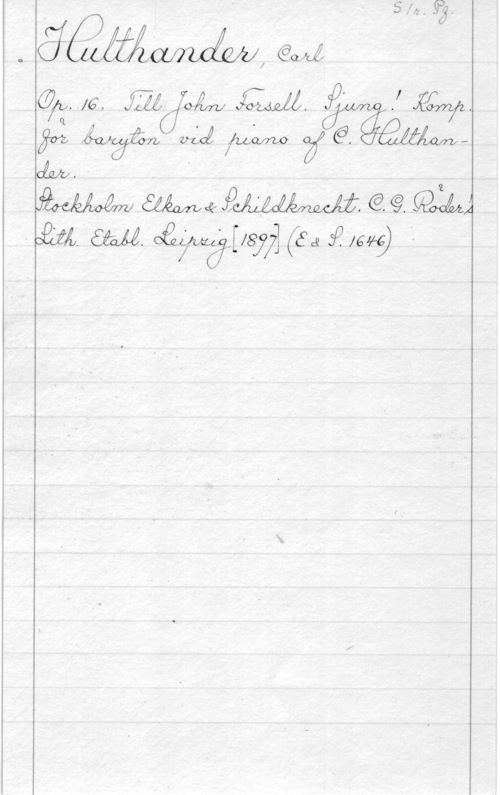 S/r. Pg.
Hulthander, Carl
Op. 16. Till John Forsell. Sjung! Komp.
för baryton vid piano af C. Hulthan-
der.
Stockholm Elkan & Schildknecht. C. G. Röder's
Lith. Etabl. Leipzig [1897] (E & S. 1646)